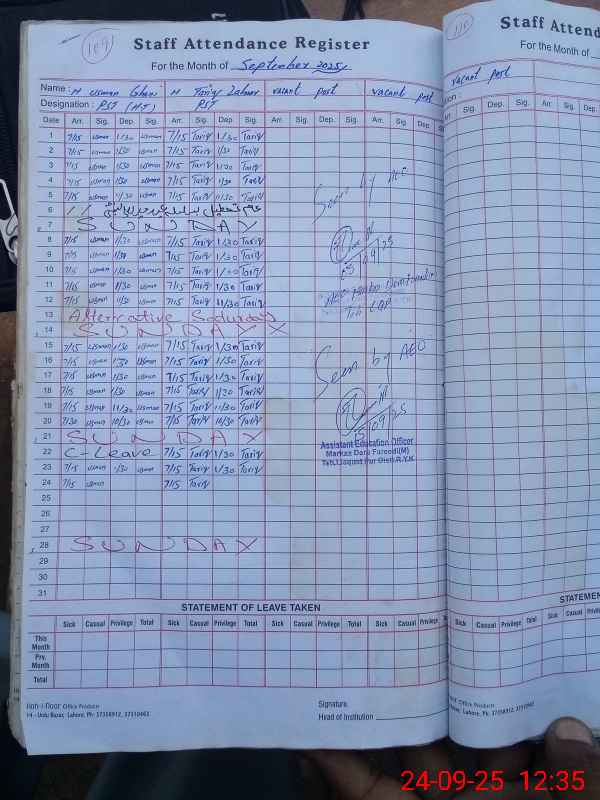 109
Staff Attendance Register
For the Month of September 2025
Name: M Usman Ghani M Tariq Zahoor vacant post vacant post
Designation: PST (HT) PST
Date Arr. Sig. Dep. Sig. Arr. Sig. Dep Sig. Arr. Sig. Dep. Sig. Arr. Sig. Dep. Sig.
1 7/15 usman 1/30 usman 7/15 Tariq 1/30 Tariq
2 7/15 usman 1/30 usman 7/15 Tariq 1/30 Tariq
3 7/15 usman 1/30 usman 7/15 Tariq 1/30 Tariq
4 7/15 usman 1/30 usman 7/15 Tariq 1/30 Tariq
5 7/15 usman 1/30 usman 7/15 Tariq 1/30 Tariq
6 عام تعطیل
7 SUNDAY
8 7/15 usman 1/30 usman 7/15 Tariq 1/30 Tariq
9 7/15 usman 1/30 usman 7/15 Tariq 1/30 Tariq
10 7/15 usman 1/30 usman 7/15 Tariq 1/30 Tariq
11 7/15 usman 1/30 usman 7/15 Tariq 1/30 Tariq
12 7/15 usman 11/30 usman 7/15 Tariq 11/30 Tariq
13 Alternative Saturday
14 SUNDAY X
15 7/15 usman 1/30 usman 7/15 Tariq 1/30 Tariq
16 7/15 usman 1/30 usman 7/15 Tariq 1/30 Tariq
17 7/15 usman 1/30 usman 7/15 Tariq 1/30 Tariq
18 7/15 usman 1/30 usman 7/15 Tariq 1/30 Tariq
19 7/15 usman 11/30 usman 7/15 Tariq 11/30 Tariq
20 7/30 usman 10/30 usman 7/15 Tariq 10/30 Tariq
21 SUNDAY
22 C-Leave 7/15 Tariq 1/30 Tariq
23 7/15 usman 1/30 usman 7/15 Tariq 1/30 Tariq
24 7/15 usman 7/15 Tariq
25
26
27
28 SUNDAY
29
30
31
Seen by AEO
Seen by AEO
Assistant Education Officer
STATEMENT OF LEAVE TAKEN
Sick Casual Privilege Total Sick Casual Privilege Total Sick Casual Privilege Total Sick Casual Privilege
This Month
Prv. Month
Total
Office Products
14 - Urdu Bazar, Lahore. Ph: 37358912, 37310462
Signature
Head of Institution
110
Staff Attend
For the Month of
vacant post
Arr. Sig. Dep. Sig. Arr. Sig. Dep.
STATEMEN
Sick Casual Privilege Total Sick Casual Privilege Total
Office Products
Lahore. Ph: 37358912, 37310462
24-09-25 12:35